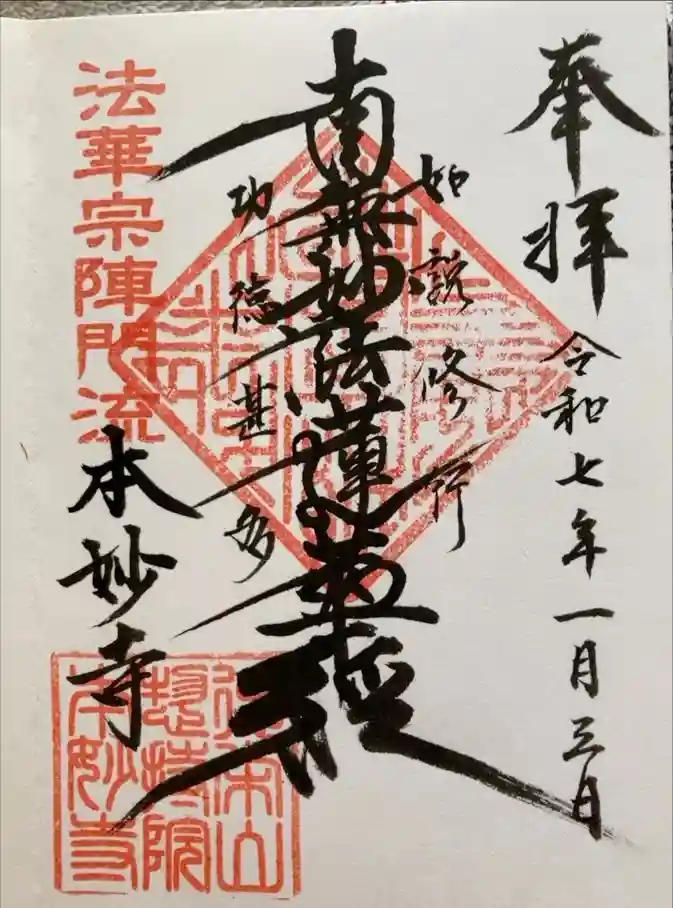 奉拝
令和七年一月三日
如説修行
南無妙法蓮華経
功徳甚多
法華宗陣門流
本妙寺
総持院
本妙寺